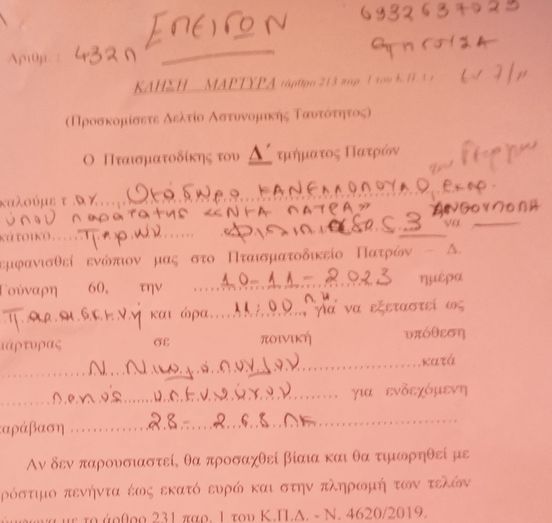 ΕΠΕΙΓΟΝ
6932637023
Αριθμ. : 432Π
ΚΛΗΣΗ ΜΑΡΤΥΡΑ (άρθρο 213 παρ. 1 του Κ.Π.Δ.)
(Προσκομίσετε Δελτίο Αστυνομικής Ταυτότητος)
Ο Πταισματοδίκης του Δ΄ τμήματος Πατρών
καλούμε τ ον Θεόδωρο ΚΑΝΕΛΛΟΠΟΥΛΟ,
παράταξης «ΝΕΑ ΠΑΤΡΑ» ΑΝΘΟΥΠΟΛΗ
κάτοικο Πατρών 3 να
εμφανισθεί ενώπιον μας στο Πταισματοδικείο Πατρών – Δ.
Γούναρη 60, την 10-11-2023 ημέρα
Παρασκευή και ώρα 11:00 π.μ. για να εξεταστεί ως
μάρτυρας σε ποινική υπόθεση
Ν. Νικολόπουλου κατά
παντός υπευθύνου για ενδεχόμενη
παράβαση 28-268 ΠΚ
Αν δεν παρουσιαστεί, θα προσαχθεί βίαια και θα τιμωρηθεί με
πρόστιμο πενήντα έως εκατό ευρώ και στην πληρωμή των τελών
σύμφωνα με το άρθρο 231 παρ. 1 του Κ.Π.Δ. - Ν. 4620/2019.